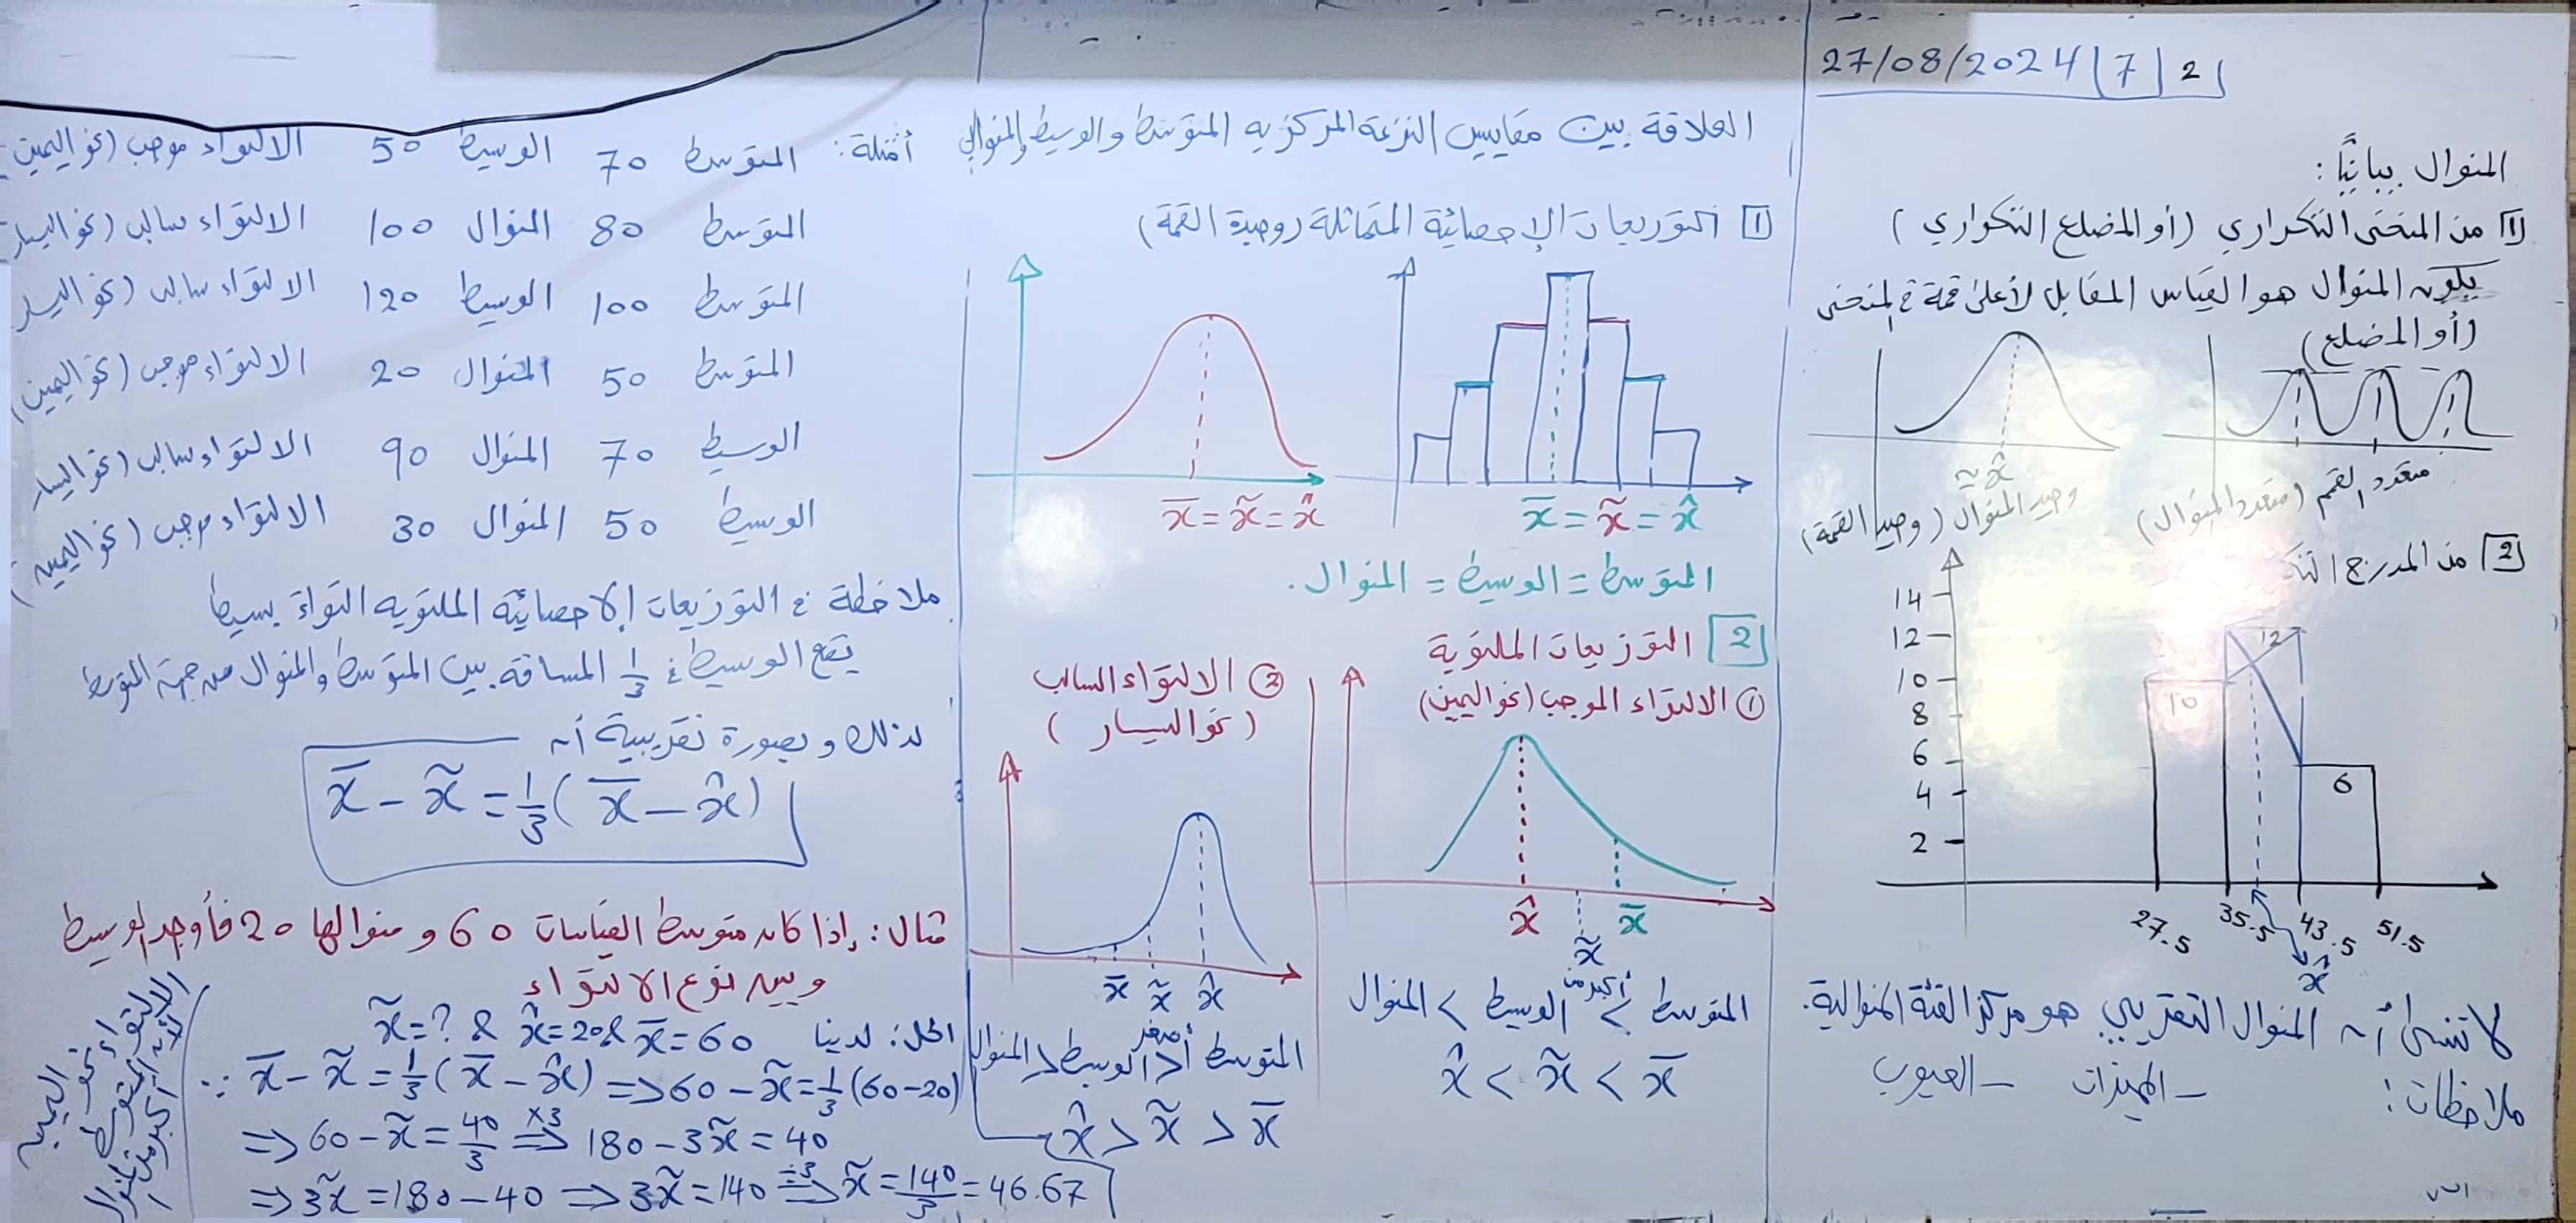 27/08/2024 | 7 | 2
المنوال بيانيًّا:
1 من المنحنى التكراري (أو المضلع التكراري)
يكون المنوال هو القياس المقابل لأعلى قمة في المنحنى
(أو المضلع)
x̂
متعدد القمم (متعدد المنوال)
وحيد المنوال (وحيد القمة)
2 من المدرج
14
12
10
8
6
4
2
10
12
6
27.5 35.5 43.5 51.5
x̂
لا تنسى أن المنوال التقريبي هو مركز الفئة المنوالية.
ملاحظات: - المميزات - العيوب
العلاقة بين مقاييس النزعة المركزية المتوسط والوسيط والمنوال
1 التوزيعات الإحصائية المتماثلة (وحيدة القمة)
x̄ = x̃ = x̂
x̄ = x̃ = x̂
المتوسط = الوسيط = المنوال.
2 التوزيعات الملتوية
① الالتواء الموجب (نحو اليمين)
x̂ x̃ x̄
المتوسط > أكبر من الوسيط > المنوال
x̂ < x̃ < x̄
② الالتواء السالب
(نحو اليسار)
x̄ x̃ x̂
المتوسط أصغر < الوسيط < المنوال
x̂ > x̃ > x̄
أمثلة: المتوسط 70 الوسيط 50 الالتواء موجب (نحو اليمين)
المتوسط 80 المنوال 100 الالتواء سالب (نحو اليسار)
المتوسط 100 الوسيط 120 الالتواء سالب (نحو اليسار)
المتوسط 50 المنوال 20 الالتواء موجب (نحو اليمين)
الوسيط 70 المنوال 90 الالتواء سالب (نحو اليسار)
الوسيط 50 المنوال 30 الالتواء موجب (نحو اليمين)
ملاحظة في التوزيعات الإحصائية الملتوية التواءً بسيطا
يقع الوسيط في 1/3 المسافة بين المتوسط والمنوال من جهة المتوسط
لذلك وبصورة تقريبية أن
x̄ - x̃ = 1/3 (x̄ - x̂)
مثال: إذا كان متوسط القياسات 60 ومنوالها 20 فأوجد الوسيط
وبين نوع الالتواء
الحل: لدينا x̄ = 60 & x̂ = 20 & x̃ = ?
∵ x̄ - x̃ = 1/3 (x̄ - x̂) => 60 - x̃ = 1/3 (60-20)
=> 60 - x̃ = 40/3 =>×3 180 - 3x̃ = 40
=> 3x̃ = 180 - 40 => 3x̃ = 140 =>÷3 x̃ = 140/3 = 46.67
الالتواء نحو اليمين
لأن المتوسط
أكبر من المنوال